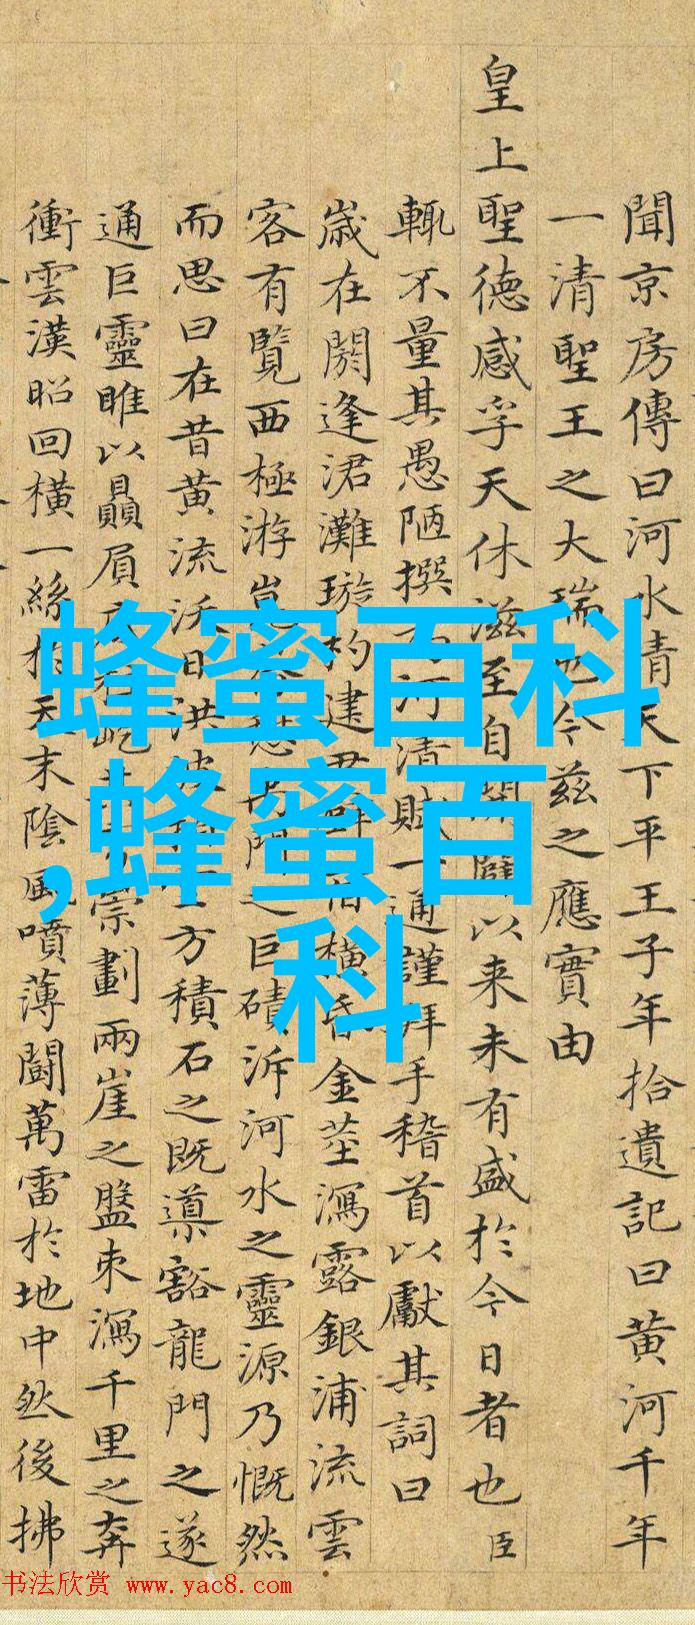 聞京房傳曰河水清天下平王子年拾遺記曰黃河千年
一清聖王之大瑞也今茲之應實由
皇上聖德感孚天休滋至自開闢以来未有盛於今日者也臣
輒不量其愚陋撰河清賦一通謹拜手稽首以獻其詞曰
歲在閼逢涒灘璇杓建橫昏金莖瀉露銀浦流雲
客有覧西極游崑門之巨磧泝河水之靈源乃慨然
而思曰在昔黄流沃日洪波方積石之既導豁龍門之遂
通巨靈雎以贔屓屹崇劃兩崖之盤束瀉千里之奔
衝雲漢昭回橫一絲於天末陰風噴薄鬭萬雷於地中然後拂
蜂蜜百科
,蜂蜜百
科
书法欣赏 www.yac8.com